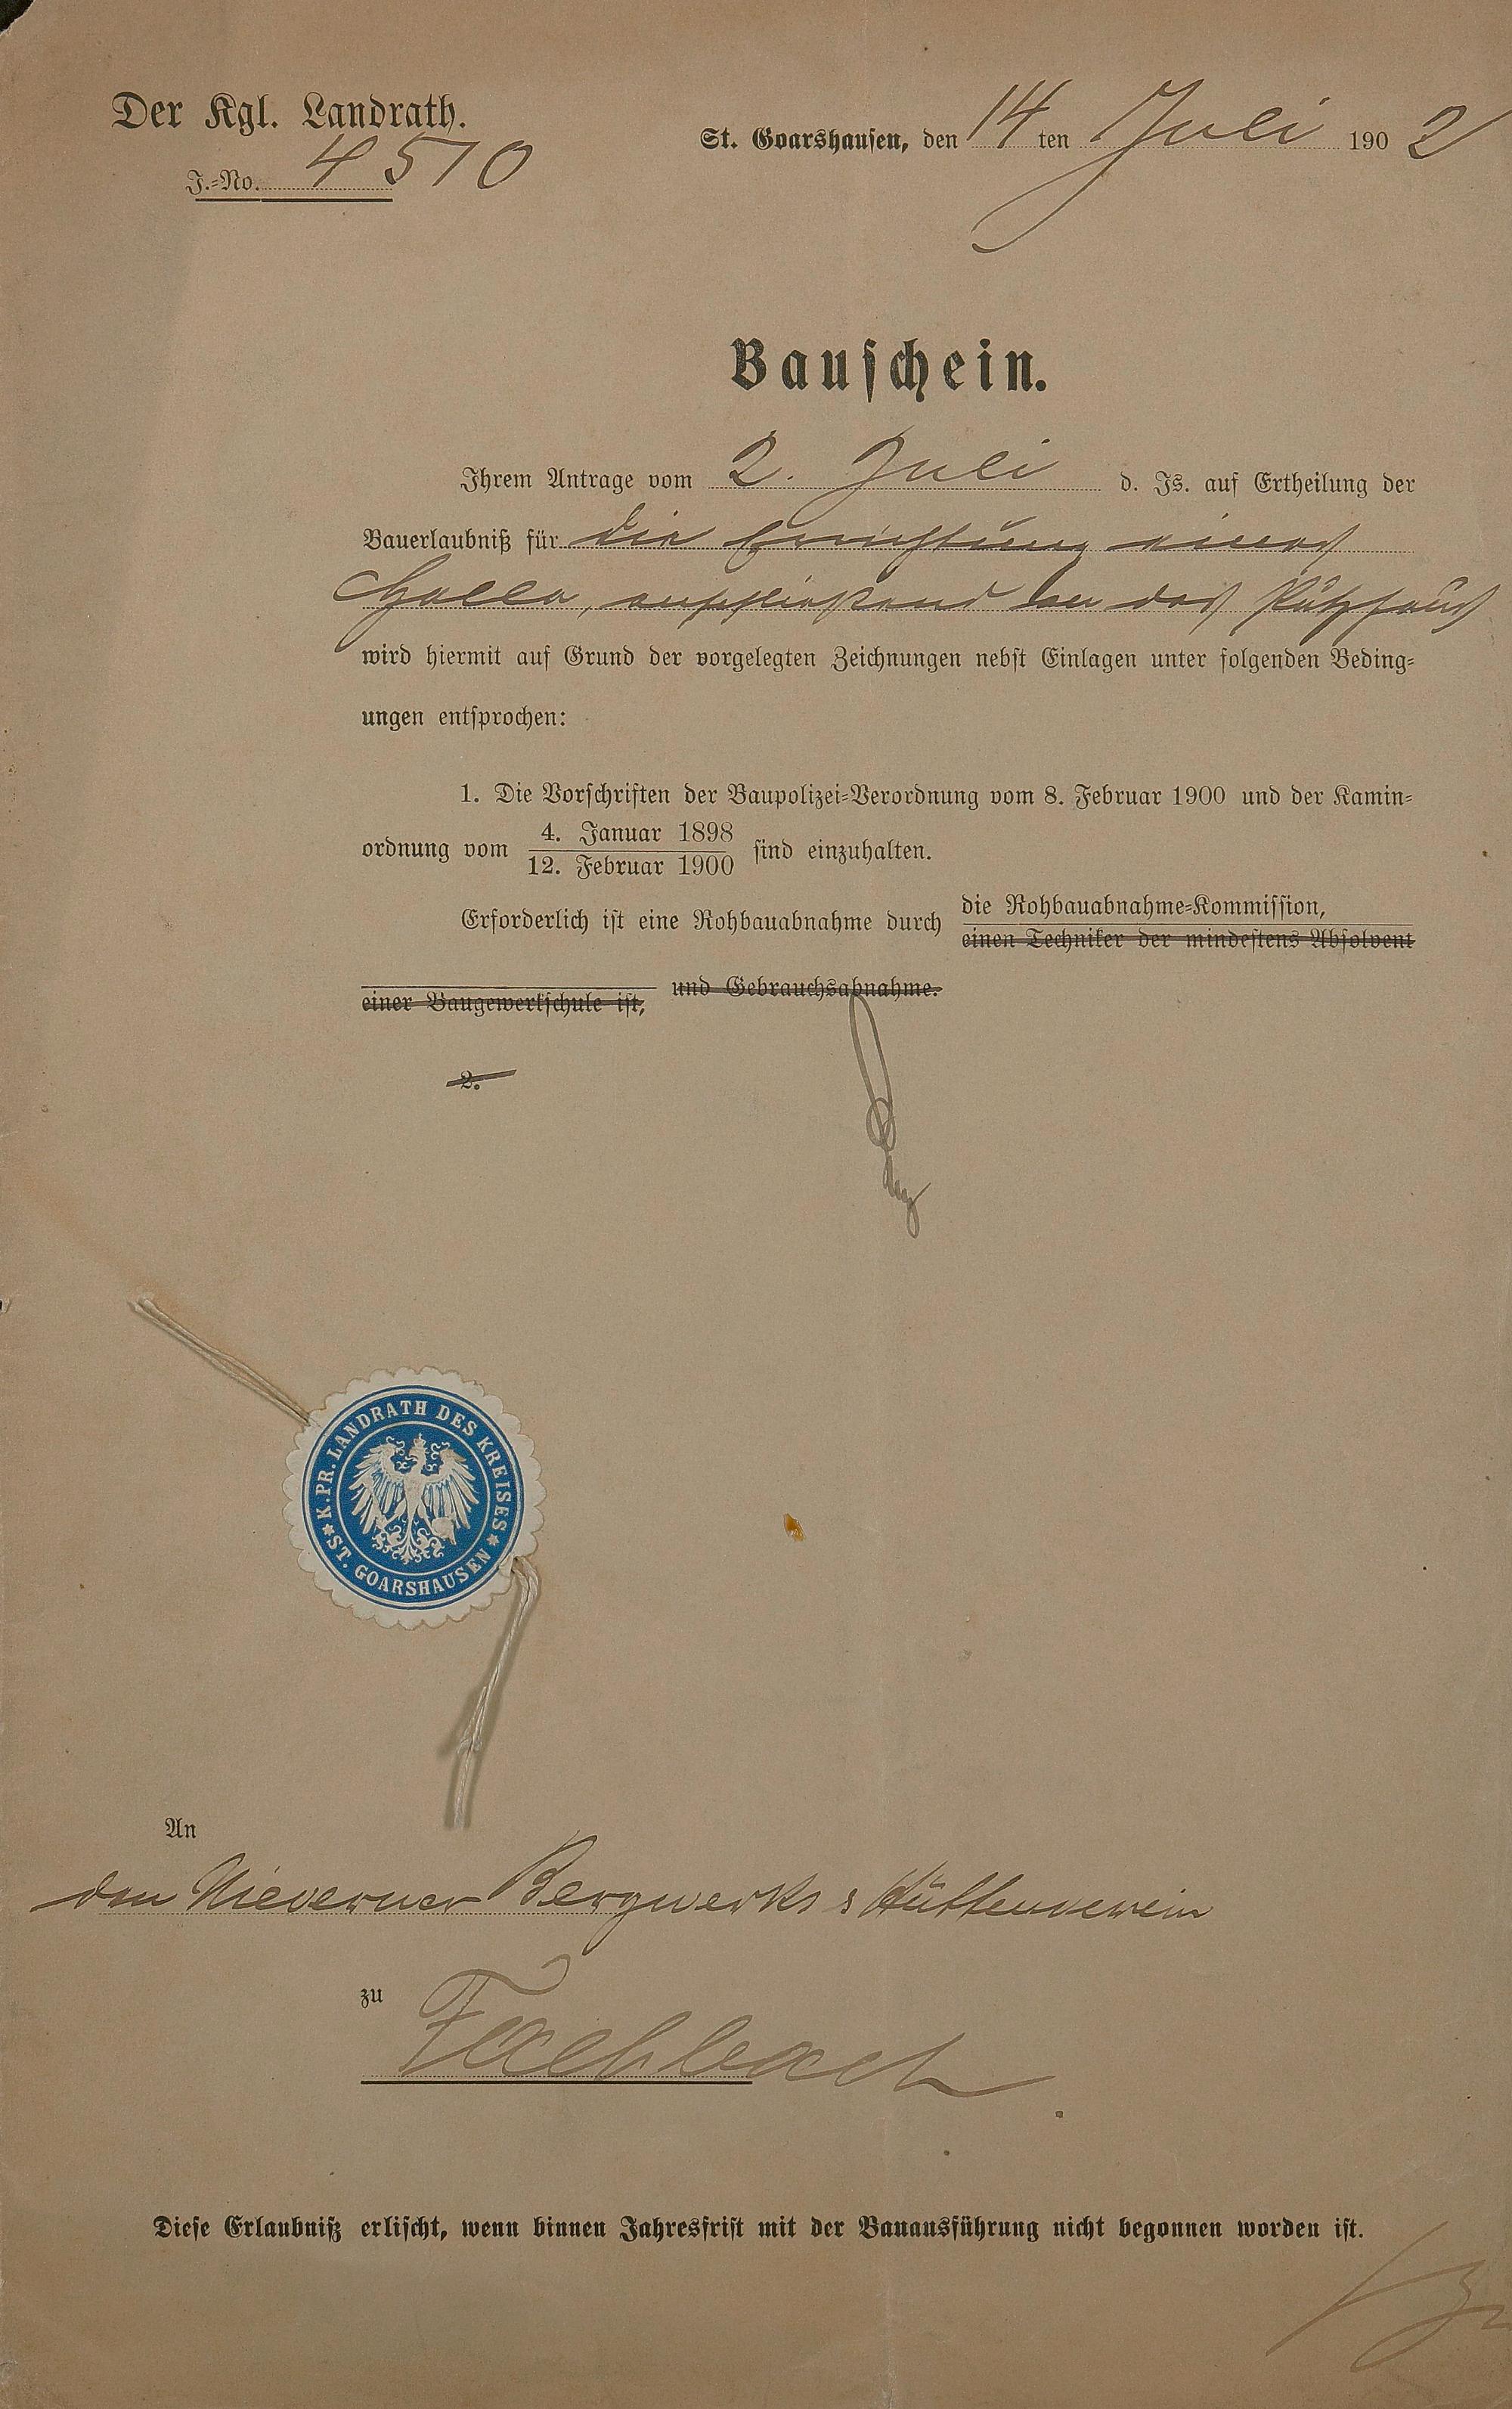 Der Kgl. Landrath.
J.-No. 4510
St. Goarshausen, den 14 ten Juli 1902
Bauschein.
Ihrem Antrage vom 2. Juli d. Js. auf Ertheilung der
Bauerlaubniß für die Errichtung einer
Halle, anschließend an das Putzhaus
wird hiermit auf Grund der vorgelegten Zeichnungen nebst Einlagen unter folgenden Beding-
ungen entsprochen:
1. Die Vorschriften der Baupolizei-Verordnung vom 8. Februar 1900 und der Kamin-
ordnung vom 4. Januar 1898 / 12. Februar 1900 sind einzuhalten.
Erforderlich ist eine Rohbauabnahme durch die Rohbauabnahme-Kommission,
einen Techniker der mindestens Absolvent
einer Baugewerkschule ist, und Gebrauchsabnahme.
2.
K. PR. LANDRATH DES KREISES
ST. GOARSHAUSEN
An
den Nieverner Bergwerks & Hüttenverein
zu Fachbach
Diese Erlaubniß erlischt, wenn binnen Jahresfrist mit der Bauausführung nicht begonnen worden ist.